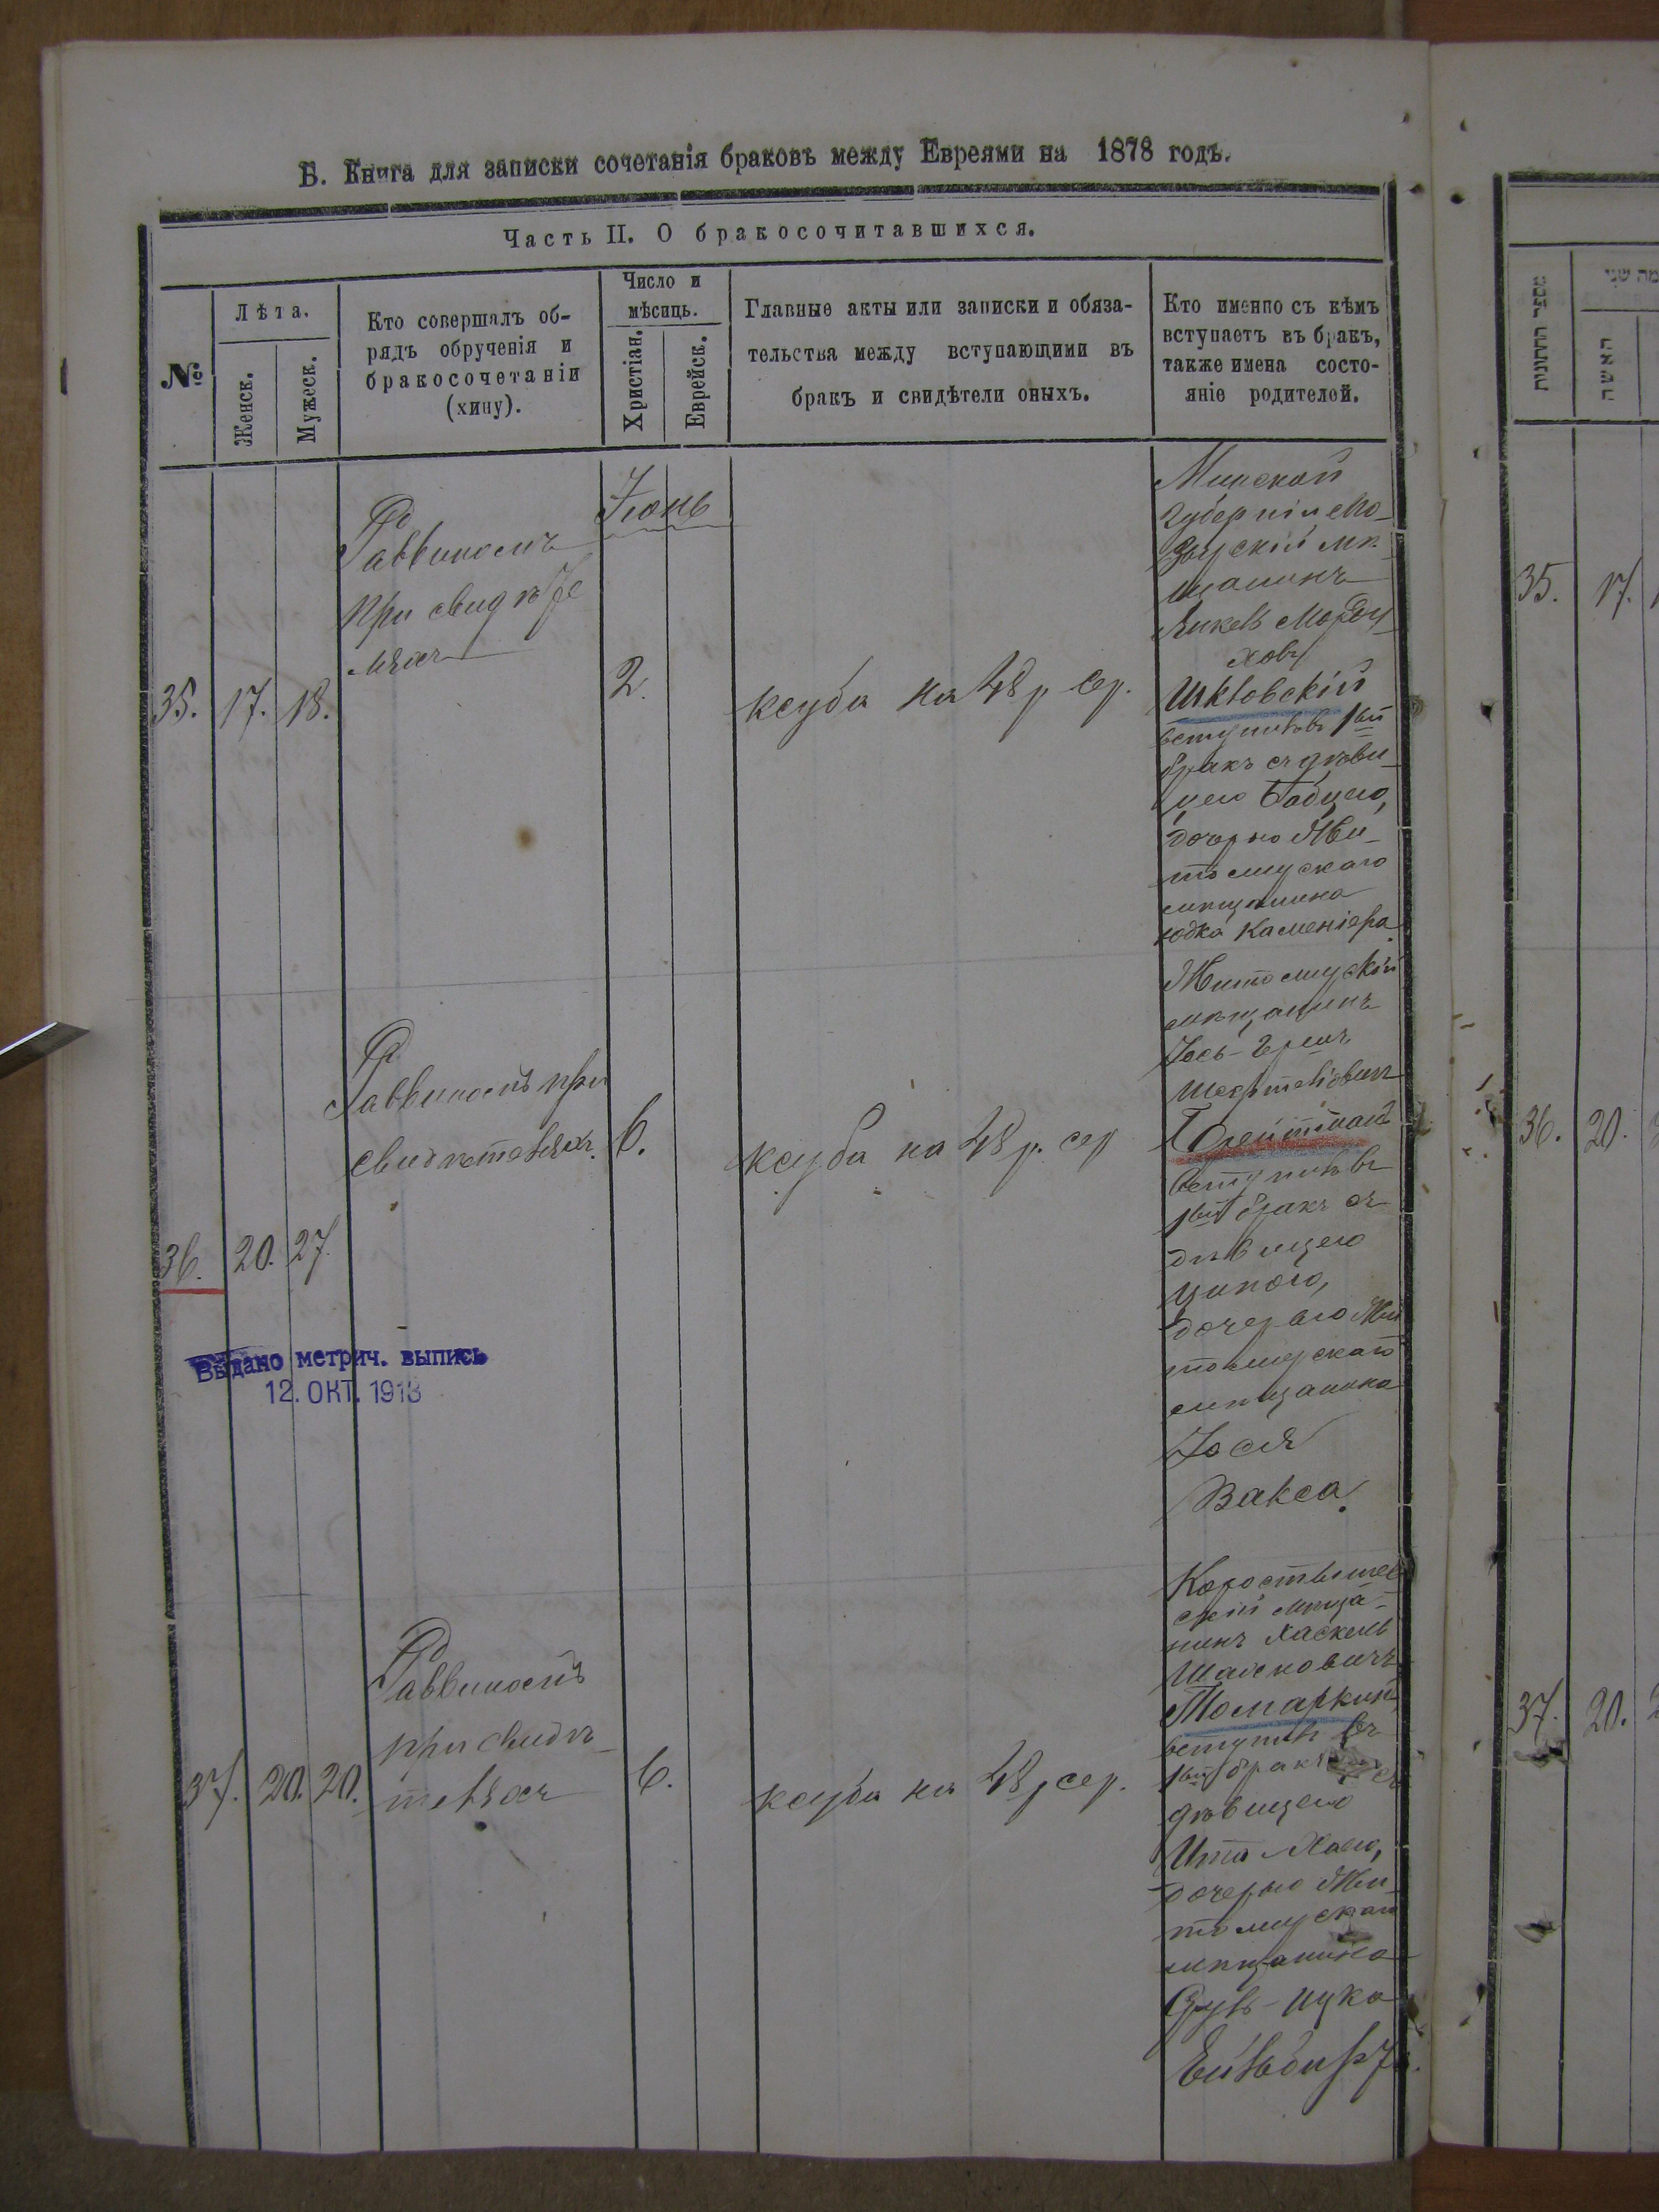 Б. Книга для записки сочетанія браковъ между Евреями на 1878 годъ.
Часть II. О бракосочитавшихся.
№
Лѣта.
Женск.
Мужеск.
Кто совершалъ об-
рядъ обрученія и
бракосочетанія
(хипу).
Число и
мѣсяцъ.
Христіан.
Еврейск.
Главные акты или записки и обяза-
тельства между вступающими въ
бракъ и свидѣтели оныхъ.
Кто именно съ кѣмъ
вступаетъ въ бракъ,
также имена состо-
яніе родителей.
Іюнь
35.
17.
18.
Раввиномъ
при свидѣте
ляхъ
2.
ксуба на 48 р сер.
Минской
губерніи Мо-
зырскій мѣ-
щанинъ
Янкель Морду
ховъ
Шкловскій
вступилъ въ 1ый
бракъ съ дѣви-
цею Бабцею,
дочерью Жи-
томирскаго
мѣщанина
Юдка Каменіера.
36.
20.
27.
Раввиномъ при
свидѣтеляхъ.
6.
ксуба на 48 р. сер
Житомирскій
мѣщанинъ
Іось-Гершъ
вступилъ въ
1ый бракъ съ
дѣвицею
Ципою,
дочерью Жи
томирскаго
мѣщанина
Іося
Вакса.
Выдано метрич. выпись
12. ОКТ. 1913
37.
20.
20.
Раввиномъ
при свидѣ-
теляхъ
6.
ксуба на 48 р сер.
Коростышев
скій мѣща-
нинъ Хаскель
Томаркинъ
вступилъ въ
1ый бракъ съ
дѣвицею
Ита Хаею,
дочерью Жи-
томирскаго
мѣщанина
Сруль-Ицка
מספר החתונות
האשה
35.
17.
36.
20.
37.
20.